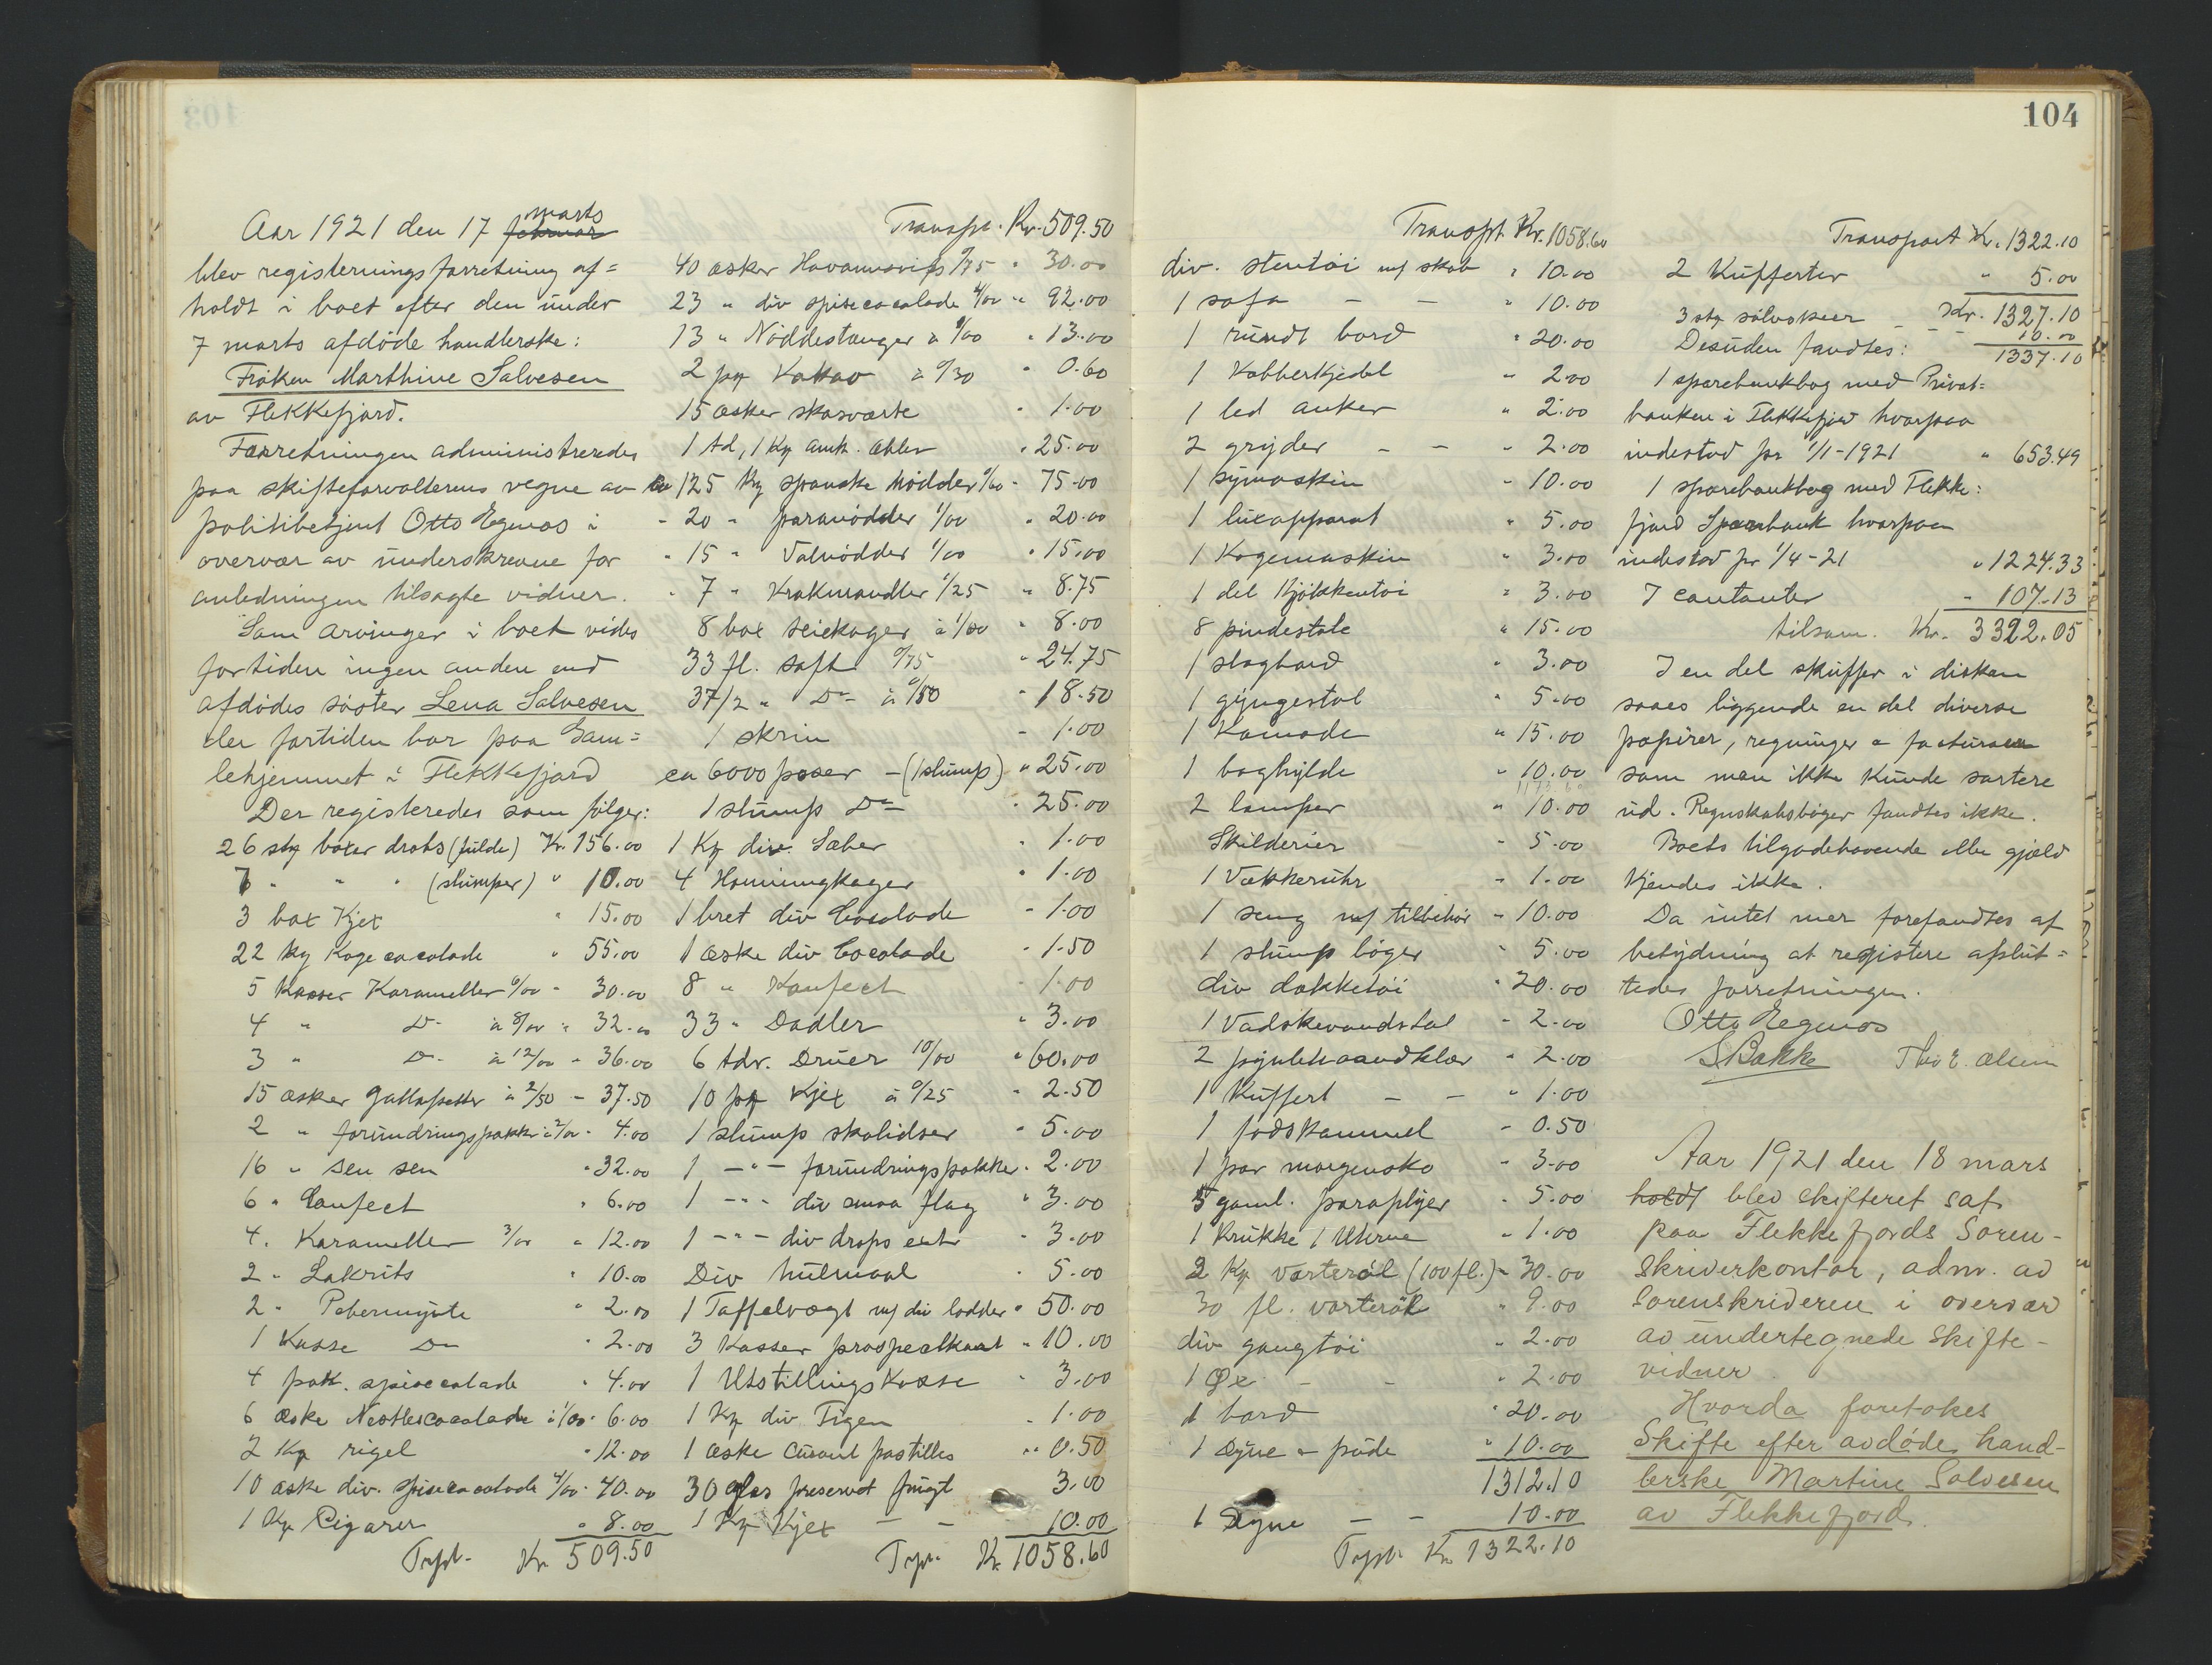 104
Aar 1921 den 17 februar marts
blev registerningsforretning af=
holdt i boet efter den under
7 marts afdöde handlerske:
Fröken Marthine Salvesen
av Flekkefjord.
Forretningen administreredes
paa skifteforvalterens vegne av
politibetjent Otto Egenes i
overvær av underskrevne for
anledningen tilsagte vidner.
Som arvinger i boet vides
fortiden ingen anden end
afdödes söster Lena Salvesen
der fortiden bor paa Gam=
lehjemmet i Flekkefjord
Der registeredes som fölger:
26 stk boxer drobs (fulde) Kr. 156.00
7 " " " (slumper) " 10.00
3 box Kjex " 15.00
22 kg Kogecocolade " 55.00
5 kasser Karameller 6/00 " 30.00
4 " Do à 8/00 " 32.00
3 " Do à 12/00 " 36.00
15 æsker Gallapetter à 2/50 - 37.50
2 " forundringspakker à 2/00 - 4.00
16 " sen sen " 32.00
6 " Confect " 6.00
4 " Karameller 3/00 " 12.00
2 " Lakrits " 10.00
2 " Pebermynte " 2.00
1 Kasse Do " 2.00
4 pak. spisecolade " 4.00
6 æske Nestlescocolade à 1/00 " 6.00
2 Kg rigel " 12.00
10 æske div. spisecocolade 4/00 " 40.00
1 Kg Cigarer " 8.00
Trpt. Kr 509.50
Transpt. Kr. 509.50
40 æsker 0/75 " 30.00
23 " div spisecocolade 4/00 " 92.00
13 " Nöddestænger à 1/00 " 13.00
2 pk Kakao à 0/30 " 0.60
15 æsker skosværte " 1.00
1 td, 1 Kg amk. æbler " 25.00
ca 125 kg spanske Nödder 0/60 " 75.00
" 20 " paranödder 1/00 " 20.00
" 15 " Valnödder 1/00 " 15.00
" 7 " Krakmandler 1/25 " 8.75
8 box à 1/00 " 8.00
33 fl. saft 0/75 " 24.75
37/2 " Do à 0/50 " 18.50
1 skrin " 1.00
ca 6000 poser - (1 slump) " 25.00
1 slump Do " 25.00
1 Kg div. Sæber " 1.00
4 Honningkager " 1.00
1 bret div Cocolade " 1.00
1 æske div Cocolade " 1.50
8 " Konfect " 1.00
33 " Dadler " 3.00
6 tdr. Druer 10/00 " 60.00
10 pk Kjex à 0/25 " 2.50
1 slump skolidser " 5.00
1 - " - forundringspakker " 2.00
1 - " - div smaa flag " 3.00
1 - " - div drops " 3.00
Div hulmaal " 5.00
1 Taffelvægt m/ div lodder " 50.00
3 Kasser prospectkort " 10.00
1 Utstillingskasse " 3.00
1 Kg div Figen " 1.00
1 æske pastilles " 0.50
30 glas preservet frugt 3.00
1 Kg Kjex - - 10.00
Trpt. Kr. 1058.60
Transpt. Kr. 1058.60
div. stentöi m/ skab " 10.00
1 sofa - - " 10.00
1 rundt bord " 20.00
1 Kobberkjedel " 2.00
1 led anker " 2.00
2 gryder - - " 2.00
1 symaskin " 10.00
1 luxapparat " 5.00
1 Kogemaskin " 3.00
1 del Kjökkentöi " 3.00
8 pindestole " 15.00
1 slagbord " 3.00
1 gyngestol " 5.00
1 Komode " 15.00
1 boghylde " 10.00
2 lamper " 10.00
Skilderier " 5.00
1 Vækkeruhr " 1.00
1 seng m/ tilbehör " 10.00
1 slump böger " 5.00
div dækketöi " 20.00
1 Vadskevandstal " 2.00
2 pyntehaandklær " 2.00
1 Kuffert - - " 1.00
1 fodskammel " 0.50
1 par morgensko " 3.00
5 gaml. paraplyer " 5.00
1 Krukke 1 Uhrne " 1.00
2 Kg vorteröl (100 fl.) " 30.00
30 fl. vorteröl " 9.00
div gangtöi " 2.00
1 Öx - - " 2.00
1 bord " 20.00
1 Dyne & pude " 10.00
1312.10
1 Dyne - - 10.00
Trspt. Kr. 1322.10
Transport Kr. 1322.10
2 Kufferter " 5.00
Kr. 1327.10
3 stk sölvskeer - - - 10.00
1337.10
Desuden fandtes:
1 sparebankbog med Privat=
banken i Flekkefjord hvorpaa
indestod pr 1/1-1921 " 653.49
1 sparebankbog med Flekke=
fjord Sparebank hvorpaa
indestod pr 1/4-21 " 1224.33
I contanter - 107.13
tilsam. Kr. 3322.05
I en del skuffer i disken
saaes liggende en del diverse
papirer, regninger & facturaer
som man ikke kunde sortere
ud. Regnskabsböger fandtes ikke.
Boets tilgodehavende eller gjæld
kjendes ikke.
Da intet mer forefandtes af
betydning at registere afslut=
tedes forretningen.
Otto Egenes
SBakke Thv E. Olsen
Aar 1921 den 18 mars
holdt blev skifteret sat
paa Flekkefjords Soren-
skriverkontor, adm. av
Sorenskriveren i overvær
av undertegnede skifte-
vidner.
Hvorda foretokes
Skifte efter avdöde hand-
lerske Martine Salvesen
av Flekkefjord.